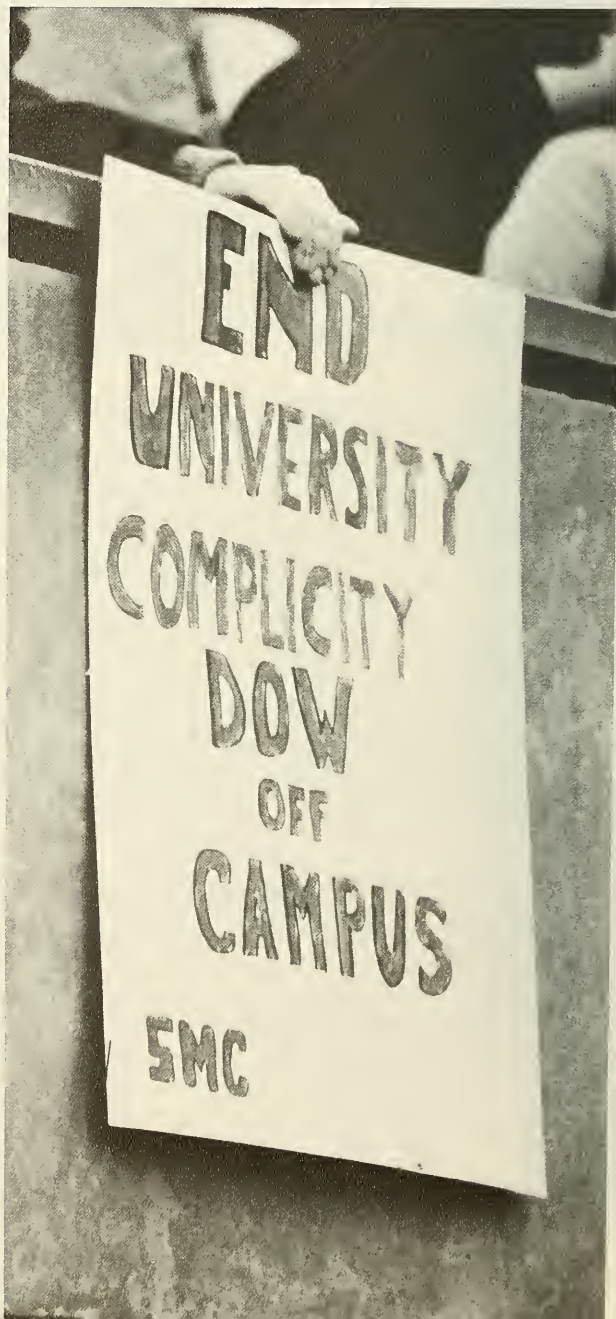 END
UNIVERSITY
COMPLICITY
DOW
OFF
CAMPUS
SMC